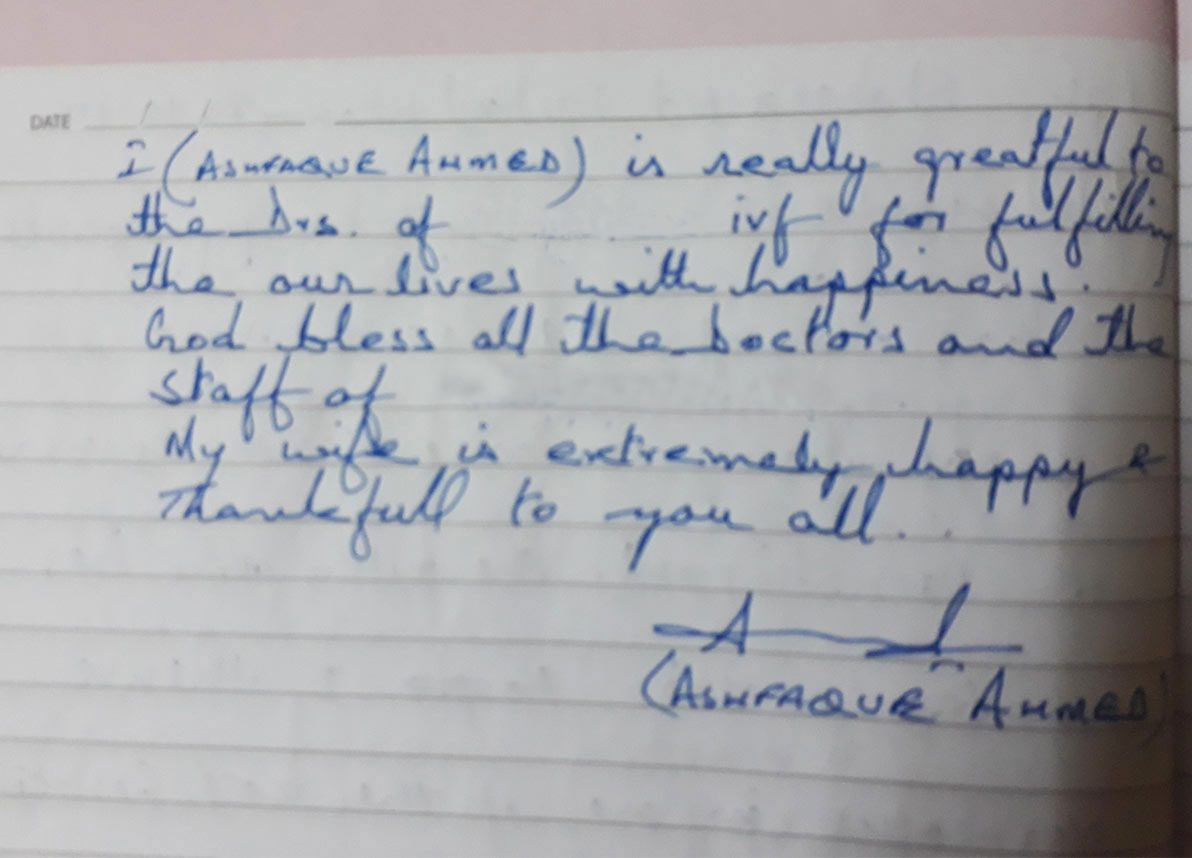 DATE / /
I (ASHFAQUE AHMED) is really greatful to
the Drs. of ivf for fulfilling
the our lives with happiness.
God bless all the Doctors and the
staff of
My wife is extremely happy &
Thankfull to you all.
(ASHFAQUE AHMED)